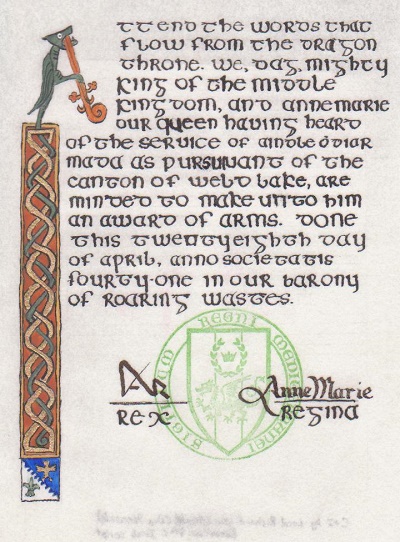 Attend the words that
flow from the dragon
throne. We, Dag, mighty
King of the Middle
Kingdom, and Annemarie
our Queen having heard
of the service of Aindle ó Diar
mada as Pursuivant of the
Canton of Weld Lake, are
minded to make unto him
an Award of Arms. Done
this twentyeighth day
of April, Anno Societatis
fourty-one in our Barony
of Roaring Wastes.
SIGILLUM REGNI MEDITERRANEI
AnneMarie
Rex Regina